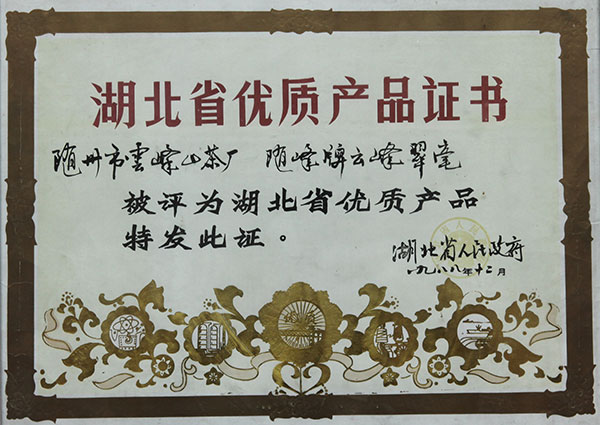 湖北省优质产品证书
随州市雲峰山茶厂 随峰牌云峰翠毫
被评为湖北省优质产品
特发此证。
湖北省人民政府
一九八八年十二月